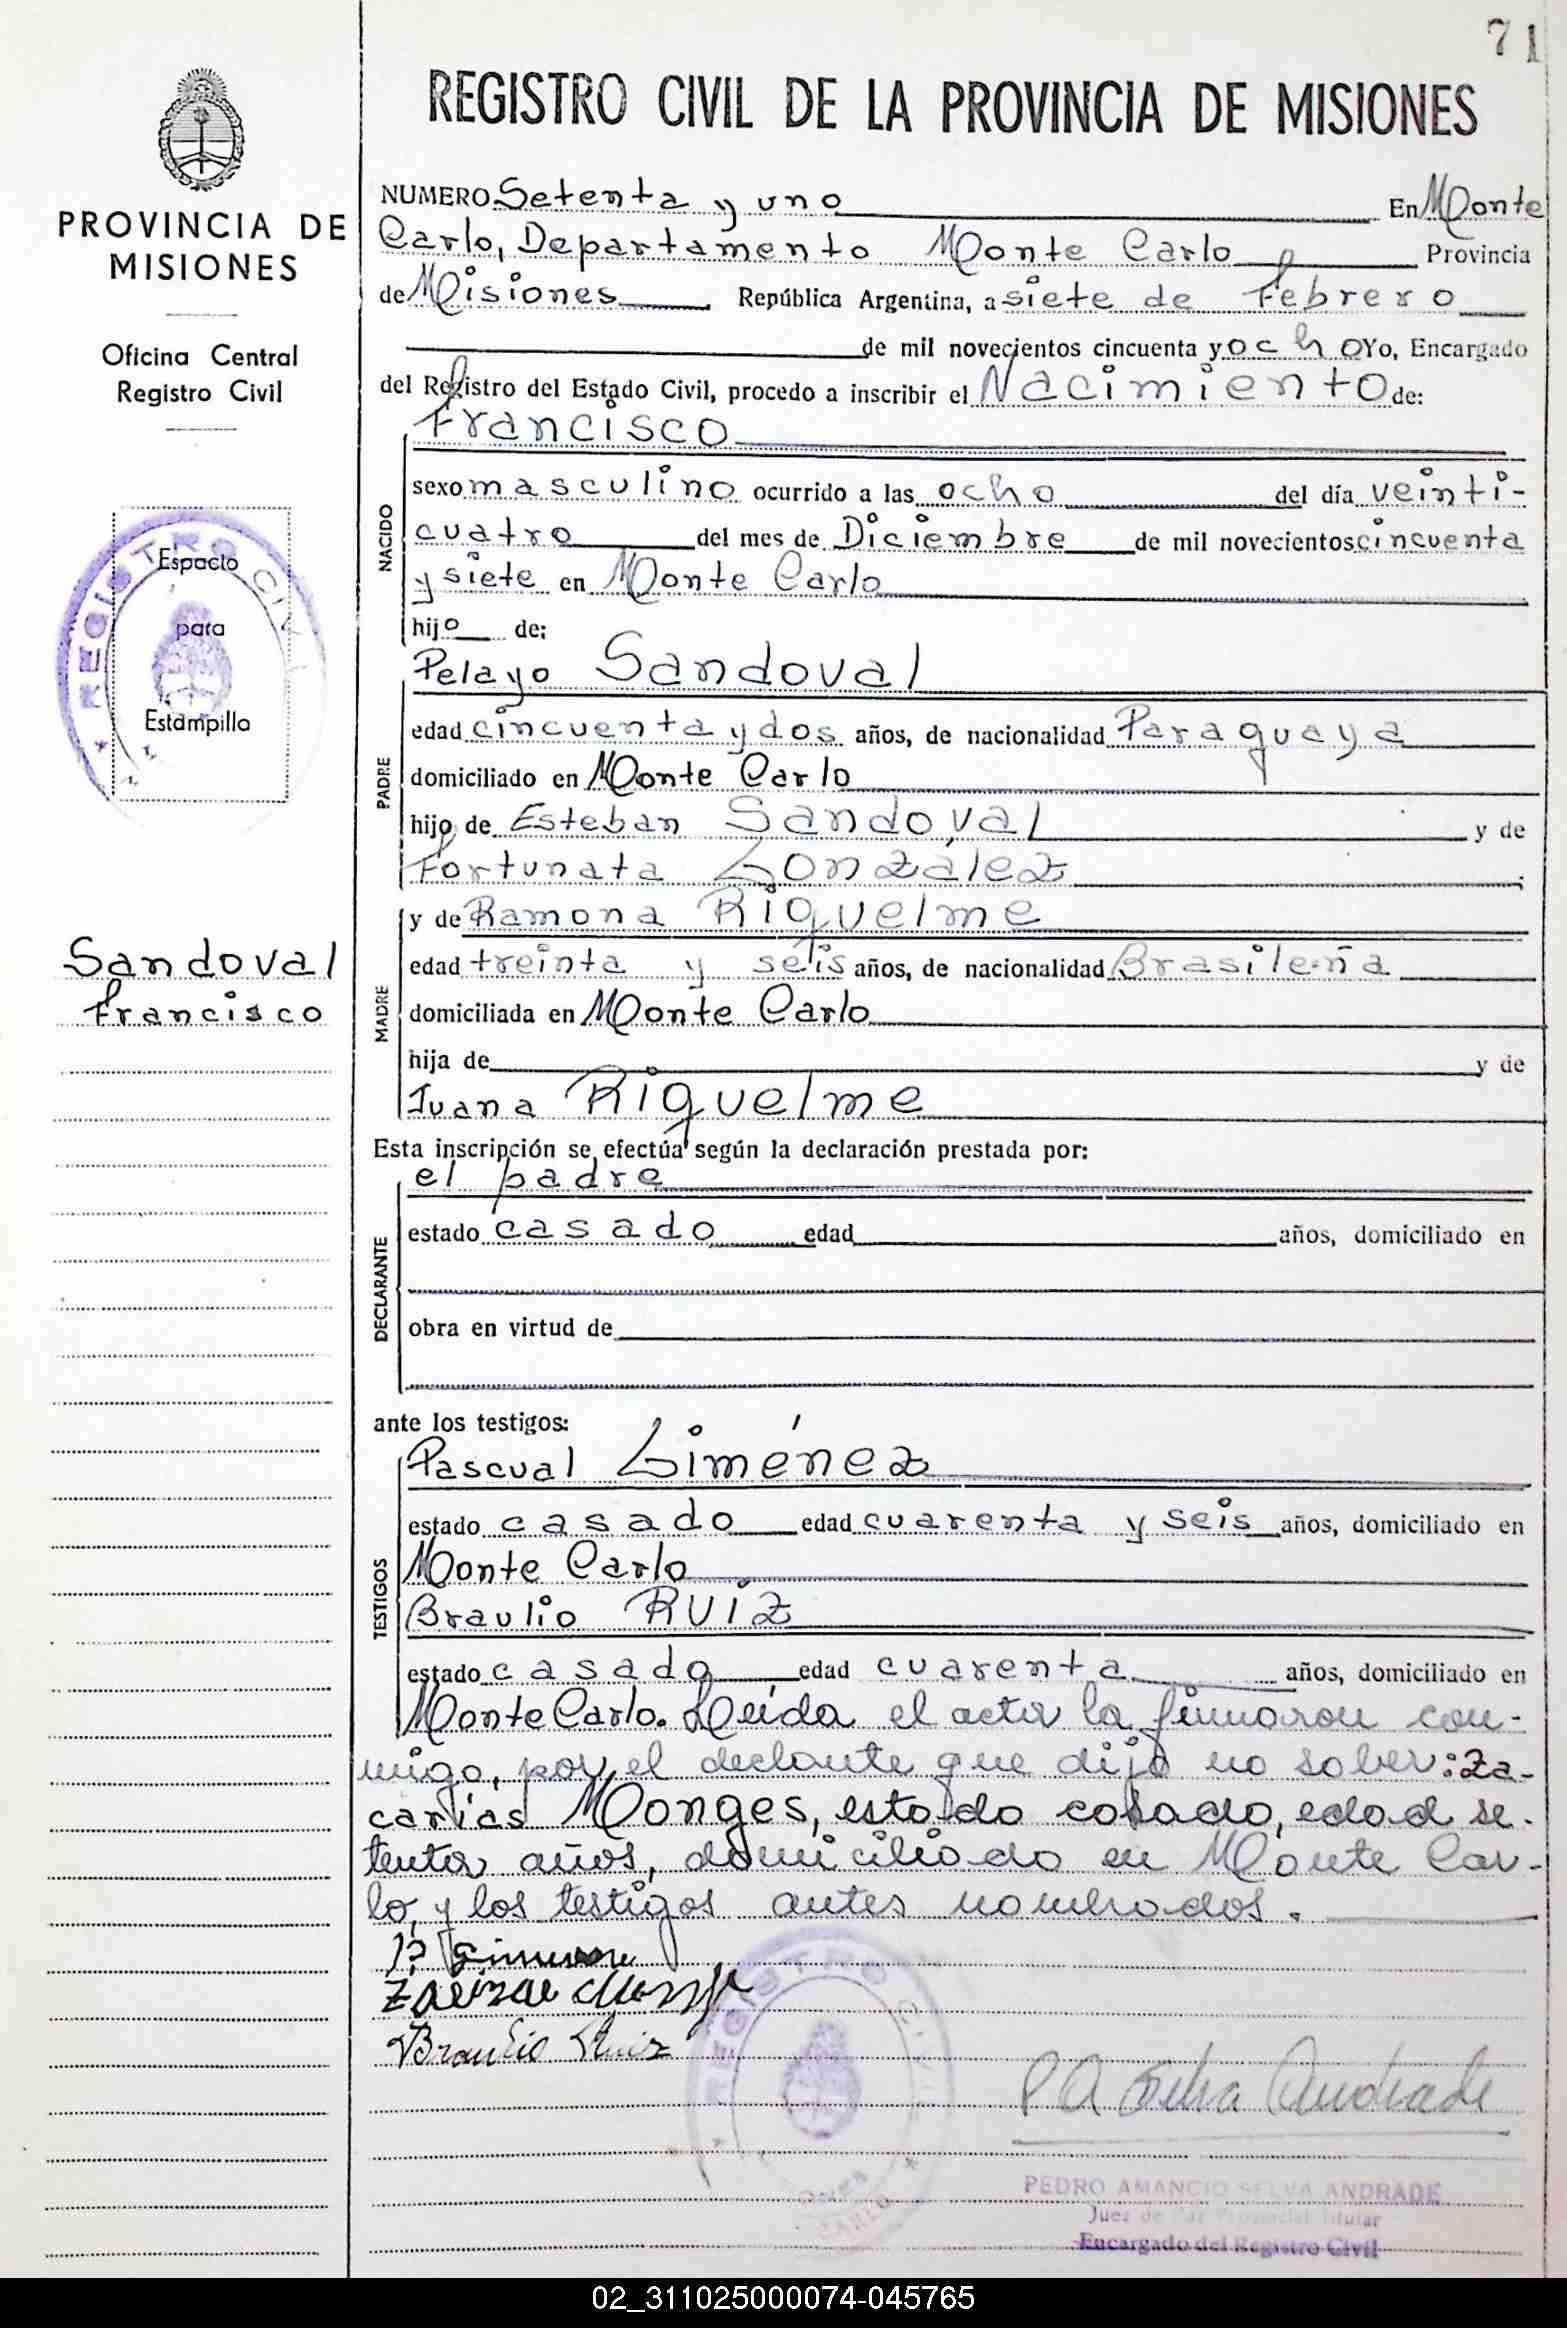 71
REGISTRO CIVIL DE LA PROVINCIA DE MISIONES
PROVINCIA DE
MISIONES
Oficina Central
Registro Civil
REGISTRO CIVIL
Espacio
para
Estampilla
Sandoval
Francisco
NUMERO Setenta y uno En Monte
Carlo, Departamento Monte Carlo Provincia
de Misiones República Argentina, a siete de Febrero
de mil novecientos cincuenta y ocho Yo, Encargado
del Registro del Estado Civil, procedo a inscribir el Nacimiento de:
NACIDO
Francisco
sexo masculino ocurrido a las ocho del día veinti-
cuatro del mes de Diciembre de mil novecientos cincuenta
y siete en Monte Carlo
hijo de:
PADRE
Pelayo Sandoval
edad cincuenta y dos años, de nacionalidad Paraguaya
domiciliado en Monte Carlo
hijo de Esteban Sandoval y de
Fortunata González
MADRE
y de Ramona Riquelme
edad treinta y seis años, de nacionalidad Brasileña
domiciliada en Monte Carlo
hija de y de
Juana Riquelme
Esta inscripción se efectúa según la declaración prestada por:
DECLARANTE
el padre
estado casado edad años, domiciliado en
obra en virtud de
ante los testigos:
TESTIGOS
Pascual Giménez
estado casado edad cuarenta y seis años, domiciliado en
Monte Carlo
Braulio Ruiz
estado casado edad cuarenta años, domiciliado en
Monte Carlo. Leída el acta la firmaron con-
migo, por el declante que dijo no saber: Za-
carías Monges, estado casado, edad se-
tenta años, domiciliado en Monte Car-
lo, y los testigos antes nombrados.
Braulio Ruiz
REGISTRO CIVIL
CARLO
P A Selva Andrade
PEDRO AMANCIO SELVA ANDRADE
Juez de Paz Provincial Titular
Encargado del Registro Civil
02_311025000074-045765